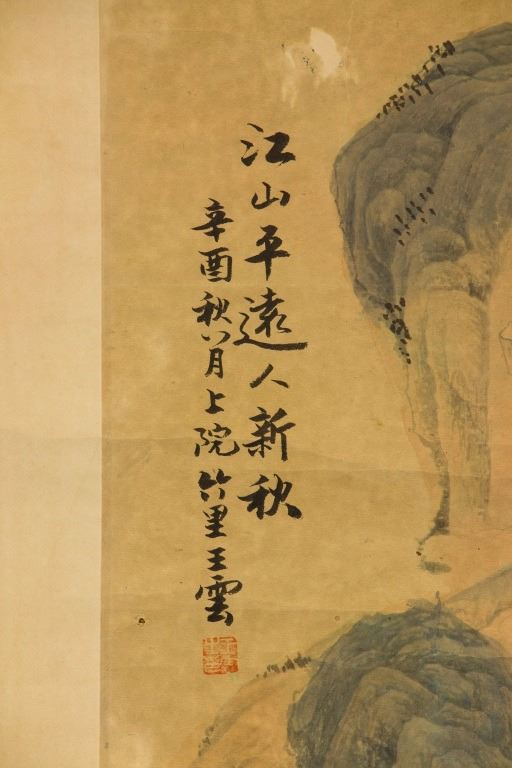 江山平遠人新秋
辛酉秋八月上院竹里王雲